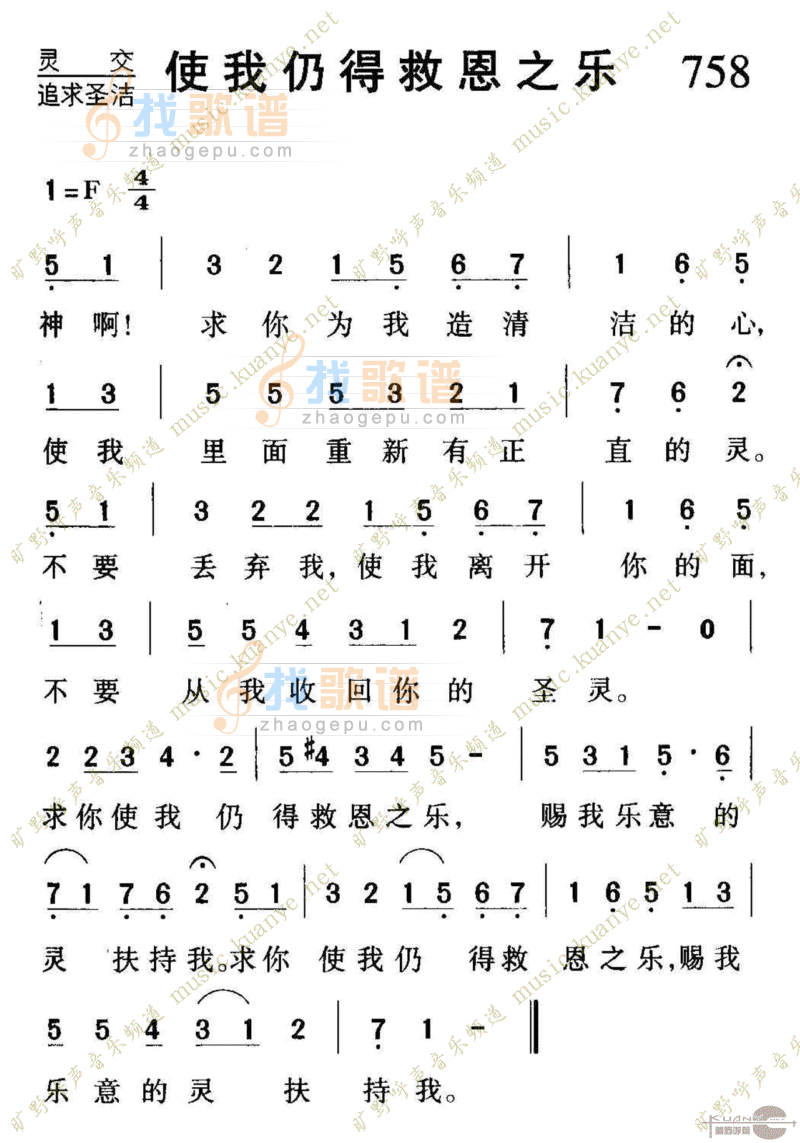 灵 交 使我仍得救恩之乐 758
追求圣洁
找歌谱
zhaogepu.com
1=F 4/4
5 1 | 3 2 1 5 6 7 | 1 6 5
神啊! 求你为我造清 洁的心,
1 3 | 5 5 5 3 2 1 | 7 6 2
使我 里面重新有正 直的灵。
找歌谱
zhaogepu.com
5 1 | 3 2 2 1 5 6 7 | 1 6 5
不要 丢弃我,使我离开 你的面,
1 3 | 5 5 4 3 1 2 | 7 1 - 0
不要 从我收回你的 圣灵。
找歌谱
zhaogepu.com
2 2 3 4 · 2 | 5 #4 3 4 5 - | 5 3 1 5 · 6
求你使我 仍 得救恩之乐, 赐我乐意的
7 1 7 6 2 5 1 | 3 2 1 5 6 7 | 1 6 5 1 3
灵 扶持我。求你 使我仍 得救 恩之乐,赐我
5 5 4 3 1 2 | 7 1 -
乐意的灵 扶 持我。
旷野呼声音乐频道 music.kuanye.net
KUANYE
旷野呼声